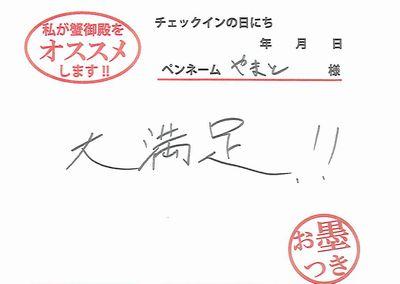 私が蟹御殿を
オススメ
します!!
チェックインの日にち
年 月 日
ペンネーム やまと 様
大満足!!
お墨
つき